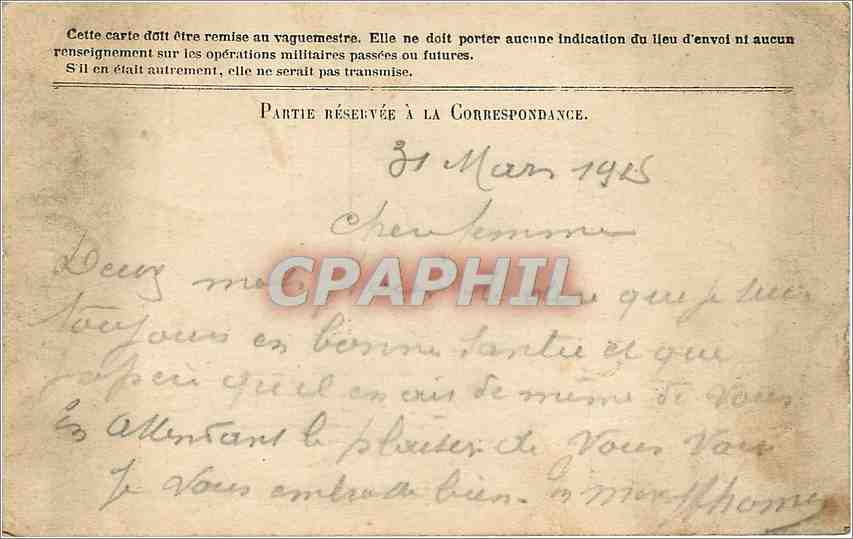 Cette carte doit être remise au vaguemestre. Elle ne doit porter aucune indication du lieu d'envoi ni aucun
renseignement sur les opérations militaires passées ou futures.
S'il en était autrement, elle ne serait pas transmise.
PARTIE RÉSERVÉE À LA CORRESPONDANCE.
31 Mars 1915
cher femme
Deux que je suis
CPAPHIL
toujours en bonne santee et que
qu'il en ais de même de vous
En Attendant le plaisir de Vous Voir
Je Vous embrasse bien